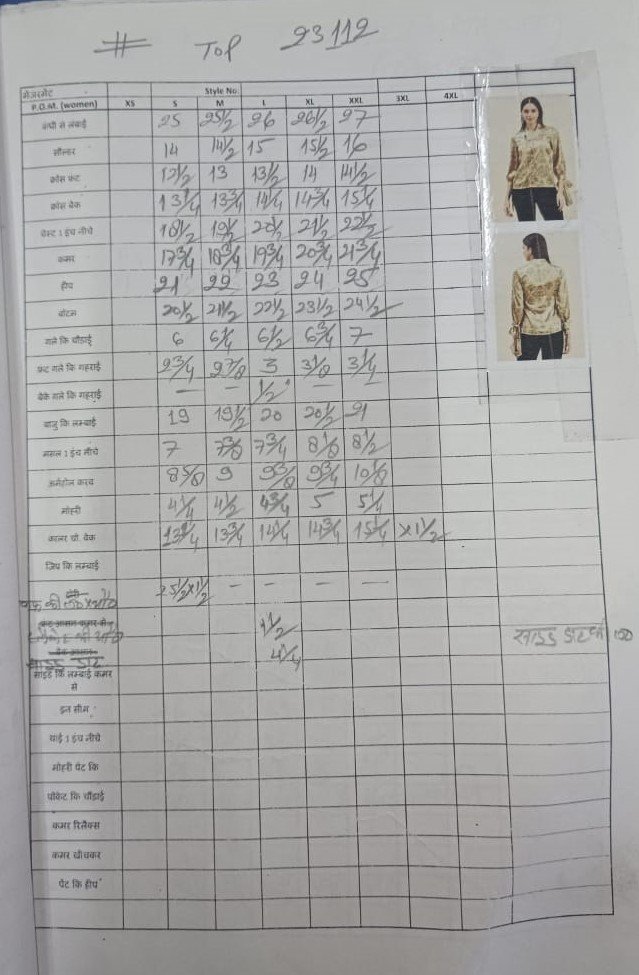 # TOP 23112
मेजरमेंट Style No.
P.O.M. (women) XS S M L XL XXL 3XL 4XL
कंधी से लंबाई 25 25 1/2 26 26 1/2 27
सोल्डर 14 14 1/2 15 15 1/2 16
क्रोस फ्रंट 12 1/2 13 13 1/2 14 14 1/2
क्रोस बैक 13 1/4 13 3/4 14 1/4 14 3/4 15 1/4
चेस्ट 1 इंच नीचे 18 1/2 19 1/2 20 1/2 21 1/2 22 1/2
कमर 17 3/4 18 3/4 19 3/4 20 3/4 21 3/4
हीप 21 22 23 24 25
बॉटम 20 1/2 21 1/2 22 1/2 23 1/2 24 1/2
गले कि चौडाई 6 6 1/4 6 1/2 6 3/4 7
फ्रंट गले कि गहराई 2 3/4 2 7/8 3 3 1/8 3 1/4
बैक गले कि गहराई — — 1/2" — —
बाजु कि लम्बाई 19 19 1/2 20 20 1/2 21
मसल 1 इंच नीचे 7 7 3/8 7 3/4 8 1/8 8 1/2
आर्महोल करव 8 5/8 9 9 3/8 9 3/4 10 1/8
मोहरी 4 1/4 4 1/2 4 3/4 5 5 1/4
कालर चो. बैक 13 1/4 13 3/4 14 1/4 14 3/4 15 1/4 x 1 1/2
जिप कि लम्बाई
25 1/2 x 1 1/2 — — — —
1 1/2
साइड डाट 4 1/4
साइड कि लम्बाई कमर से
इन सीम
थाई 1 इंच नीचे
मोहरी पेट कि
पॉकेट कि चौंडाई
कमर रिलैक्स
कमर खीचकर
पेट कि हीप